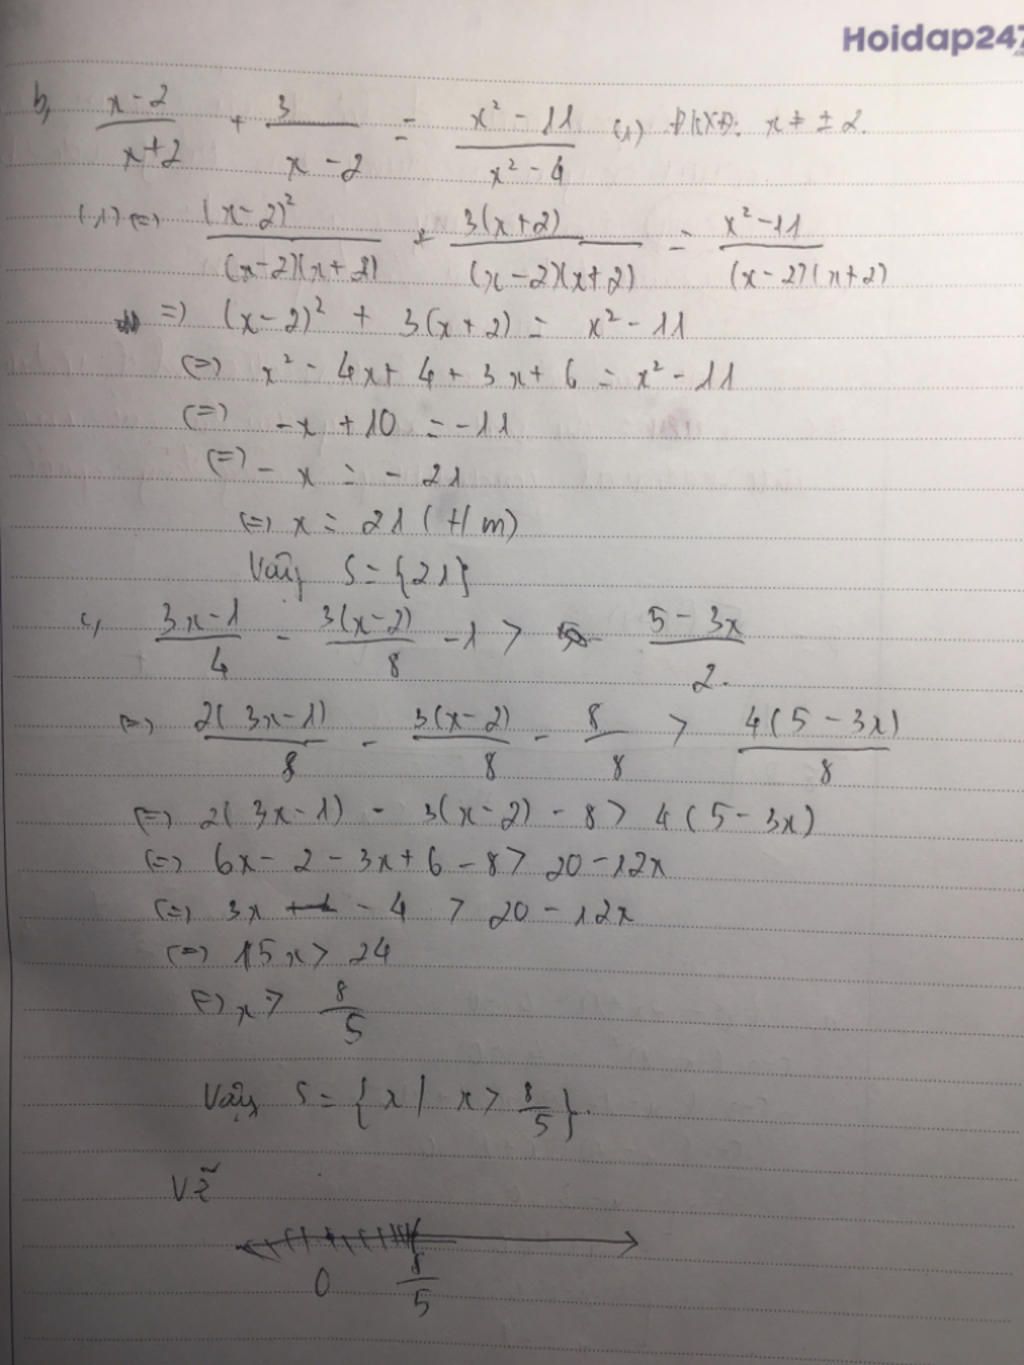 Hoidap247
b, \frac{x-2}{x+2} + \frac{3}{x-2} = \frac{x^2-11}{x^2-4} (1) ĐKXĐ: x ≠ ± 2.
(1) <=> \frac{(x-2)^2}{(x-2)(x+2)} + \frac{3(x+2)}{(x-2)(x+2)} = \frac{x^2-11}{(x-2)(x+2)}
=> (x-2)^2 + 3(x+2) = x^2-11
<=> x^2 - 4x + 4 + 3x + 6 = x^2 - 11
<=> -x + 10 = -11
<=> -x = -21
<=> x = 21 (t/m)
Vậy S = {21}
c, \frac{3x-1}{4} - \frac{3(x-2)}{8} - 1 > \frac{5-3x}{2}.
<=> \frac{2(3x-1)}{8} - \frac{3(x-2)}{8} - \frac{8}{8} > \frac{4(5-3x)}{8}
<=> 2(3x-1) - 3(x-2) - 8 > 4(5-3x)
<=> 6x - 2 - 3x + 6 - 8 > 20 - 12x
<=> 3x - 4 > 20 - 12x
<=> 15x > 24
<=> x > \frac{8}{5}
Vậy S = {x | x > \frac{8}{5}}.
Vẽ
0 \frac{8}{5}